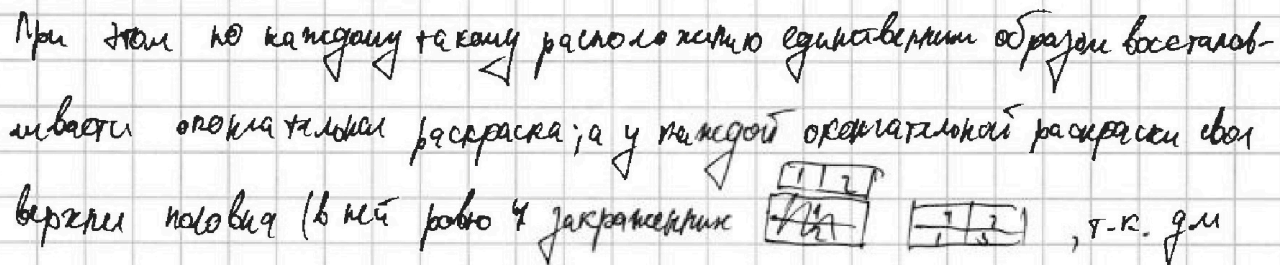 При этом по каждому такому расположению единственным образом восстанов-
ливается окончательная раскраска; а у каждой окончательной раскраски своя
1 2
верхняя половина (в ней ровно 4 закрашенных , т.к. для